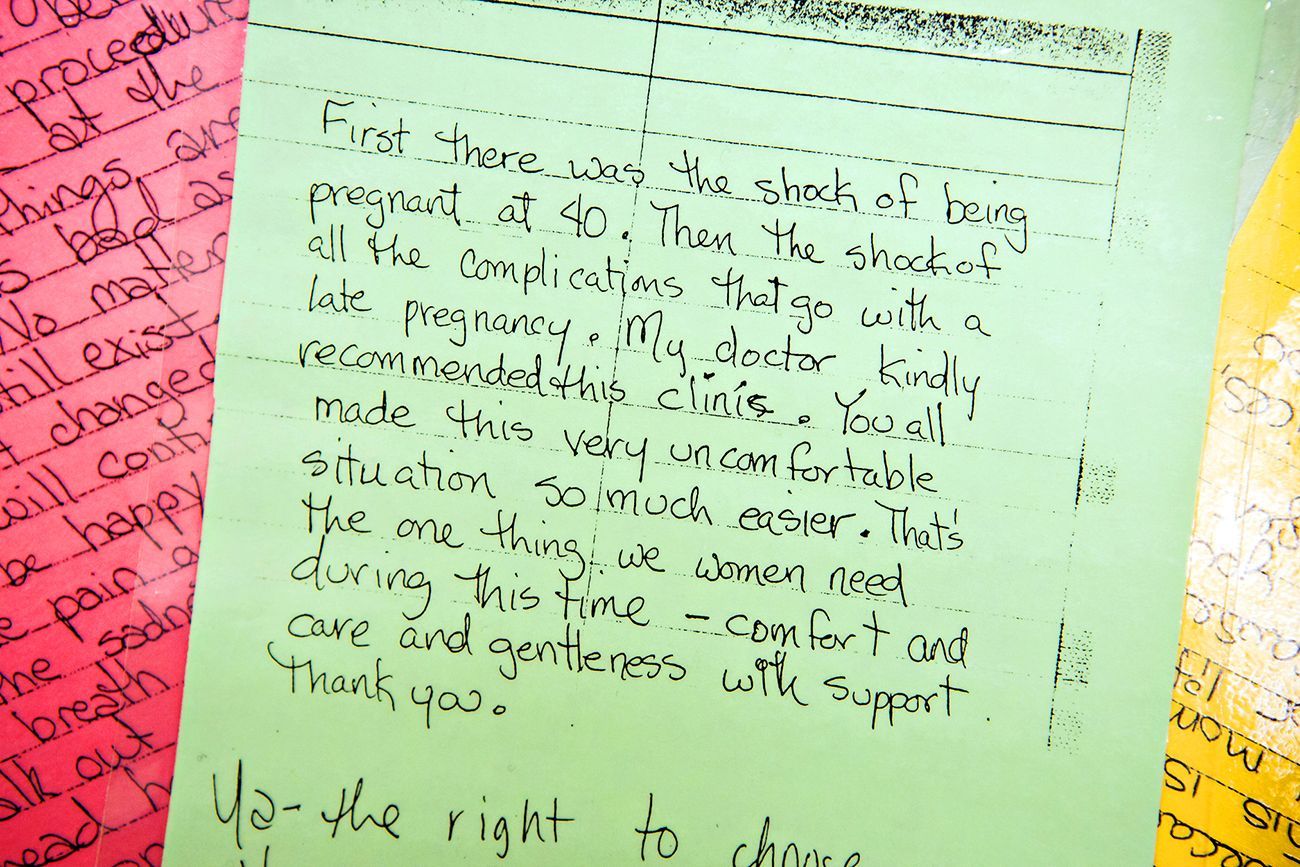 proceedure
at the
things are
bad as
No matter
still exist
changed
will conti
be happy
pain a
the sadne
breath
alk out
ead h
First there was the shock of being
pregnant at 40. Then the shock of
all the complications that go with a
late pregnancy. My doctor kindly
recommended this clinic. You all
made this very uncomfortable
situation so much easier. That's
the one thing we women need
during this time - comfort and
care and gentleness with support.
Thank you.
Ya- the right to choose